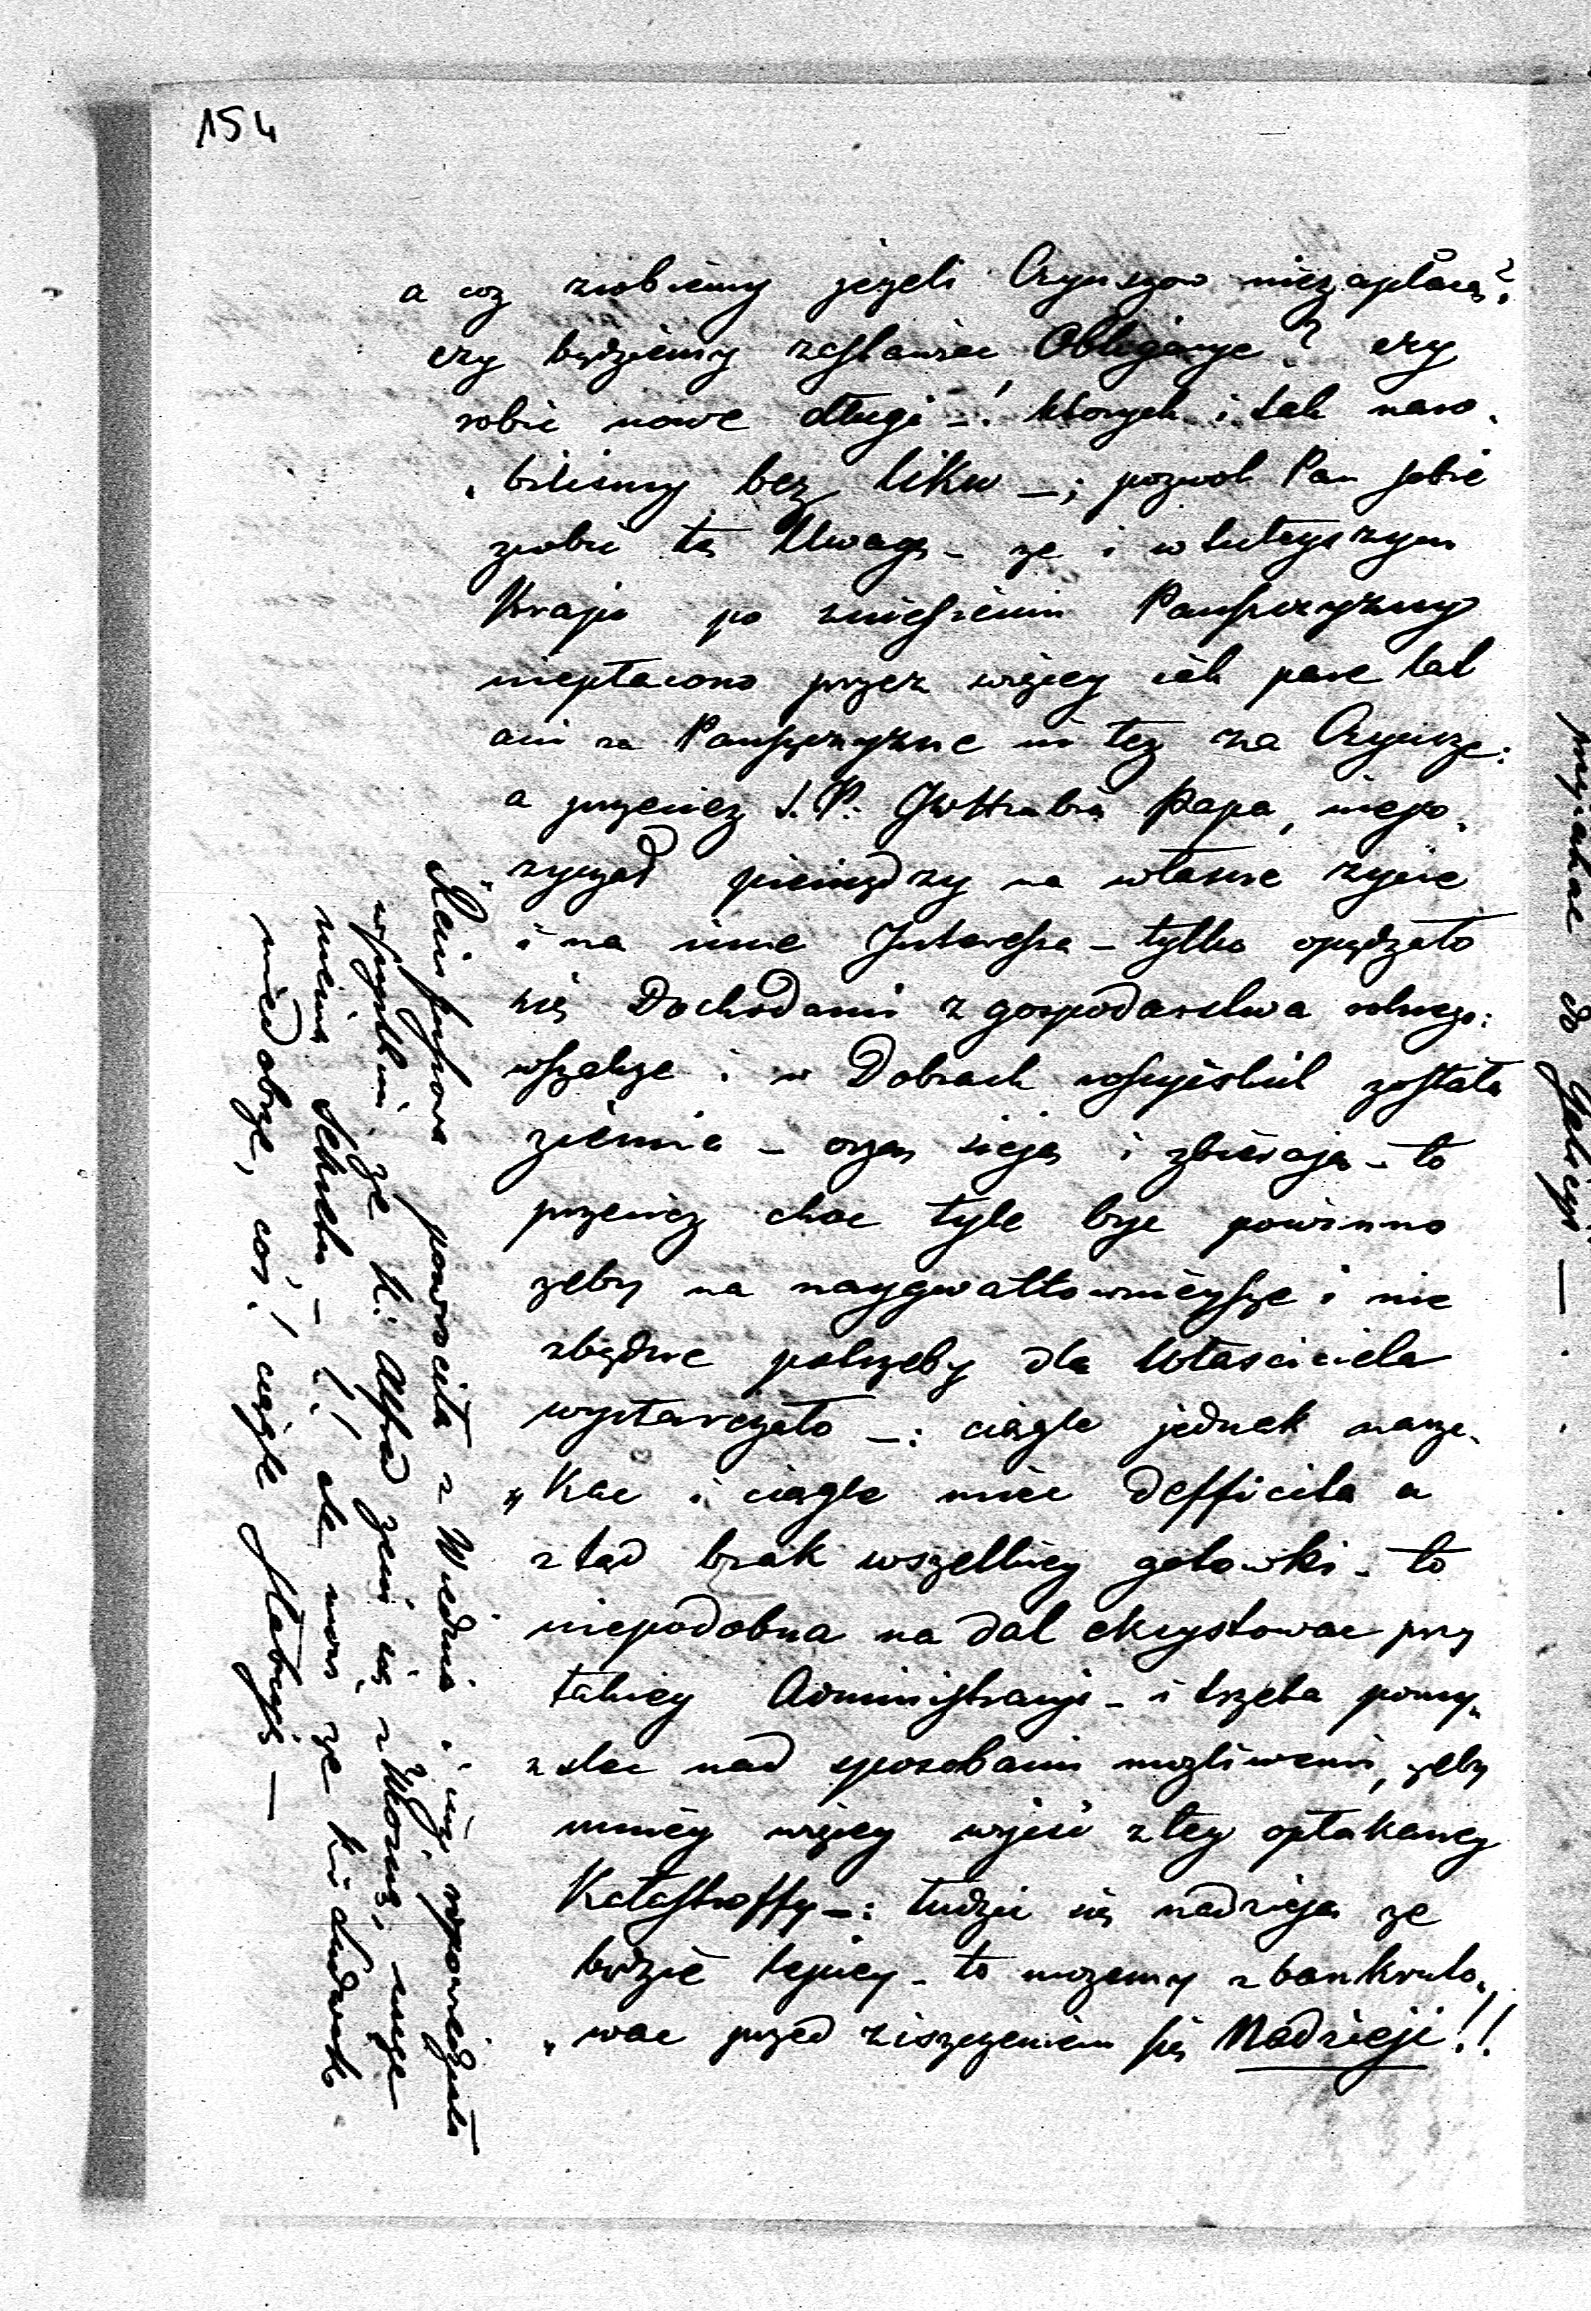 154
a coz zrobiemy jezeli Czynszow niezaplacą?
czy będziemy zastawiac Obligacye? czy
robic nowe długi -! ktorych i tak naro-
-bilismy bez liku -; pozwol Pan sobie
zrobic tę Uwagę - ze i w tuteyszym
Kraju po zniesieniu Panszczyzny
niepłacono przez więcey jak pare lat
ani za Panszczyzne ni tez za Czynsze:
a przeciez S.P. JWHrabia Papa, niepo-
zyczał pieniędzy na własne zycie
i na inne Interessa - tylko opędzało
się Dochodami z gospodarstwa rolnego:
wszakze i w Dobrach rossyiskich została
ziemia - orzą sieją i zbierają - to
przeciez choc tyle byc powinno
zeby na naygwałtownieysze i nie
zbędne potrzeby dla Własciciela
wystarczało -: ciągle jednak narze-
"kac i ciągle miec defficita a
z tąd brak wszelkiey gotowki - to
niepodobna na dal ekzystowac przy
takiey Administracyi - i trzeba pomy-
slec nad sposobami mozliwemi, zeby
mniey więcey wyjsc z tey opłakaney
Katastroffy -: łudzic się nadzieją ze
będzie lepiey - to mozemy zbankruto-
"wac przed ziszczeniem się Nadzieji!!
powrociła z Wiednia i wypowiedziała
wszystkim ze H: Alfred zeni się z
ale mowi ze
niedobrze, cos! ciągle słabuje -
do Galicyi -